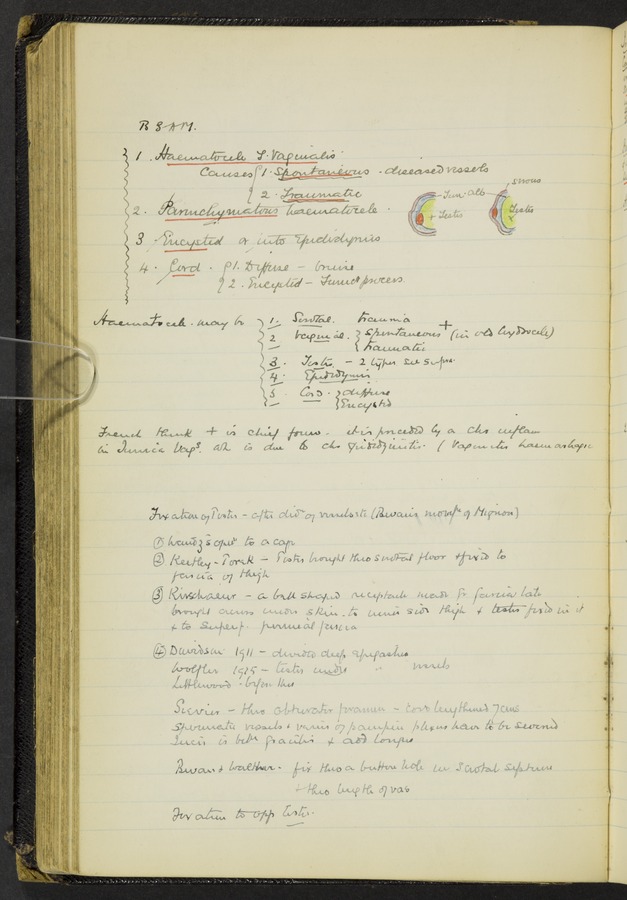 1. Haematocele T. Vaginalis
Causes 1. Spontaneous . diseased vessels
2. Traumatic
serous
Tun. Alb
+ Testis
Testis
2. Parenchymatous haematocele.
3 Encysted or into Epididymis
4. Cord . 1. Diffuse –
2. Encysted –
Haematocele may be 1. Scrotal. trauma
2 Vaginal. Spontaneous + (in old hydrocele)
traumatic
3. Testis. – 2 types see supra.
4. Epididymis
5. Cord. diffuse
Encysted
French think + is chief form. it is preceded by a chr inflam
in Tunica Vags. is due to chr epididymitis. (Vaginitis haemorrhagic
Fixation of Testis – after divn of vessels etc (Bevan's of Mignon)
① to a cage
② Keetley-Torek – Testis brought thro scrotal floor + fixed to
fascia of thigh
③ – a ball shaped receptacle made fr fascia lata
brought across under skin to inner side thigh + testis fixed in it
+ to superf. perineal fascia
④ Davidson 1911 – divided deep epigastric
1915 – testis under " vessels
Littlewood - before this
– thro obturator foramen – cord lengthened 7 cms
spermatic vessels + veins of pampin plexus have to be severed
is betr gracilis + add longus
Bevan + Walther . fix thro a button hole in scrotal septum
+ thro length of vas
Fixation to opp testis.